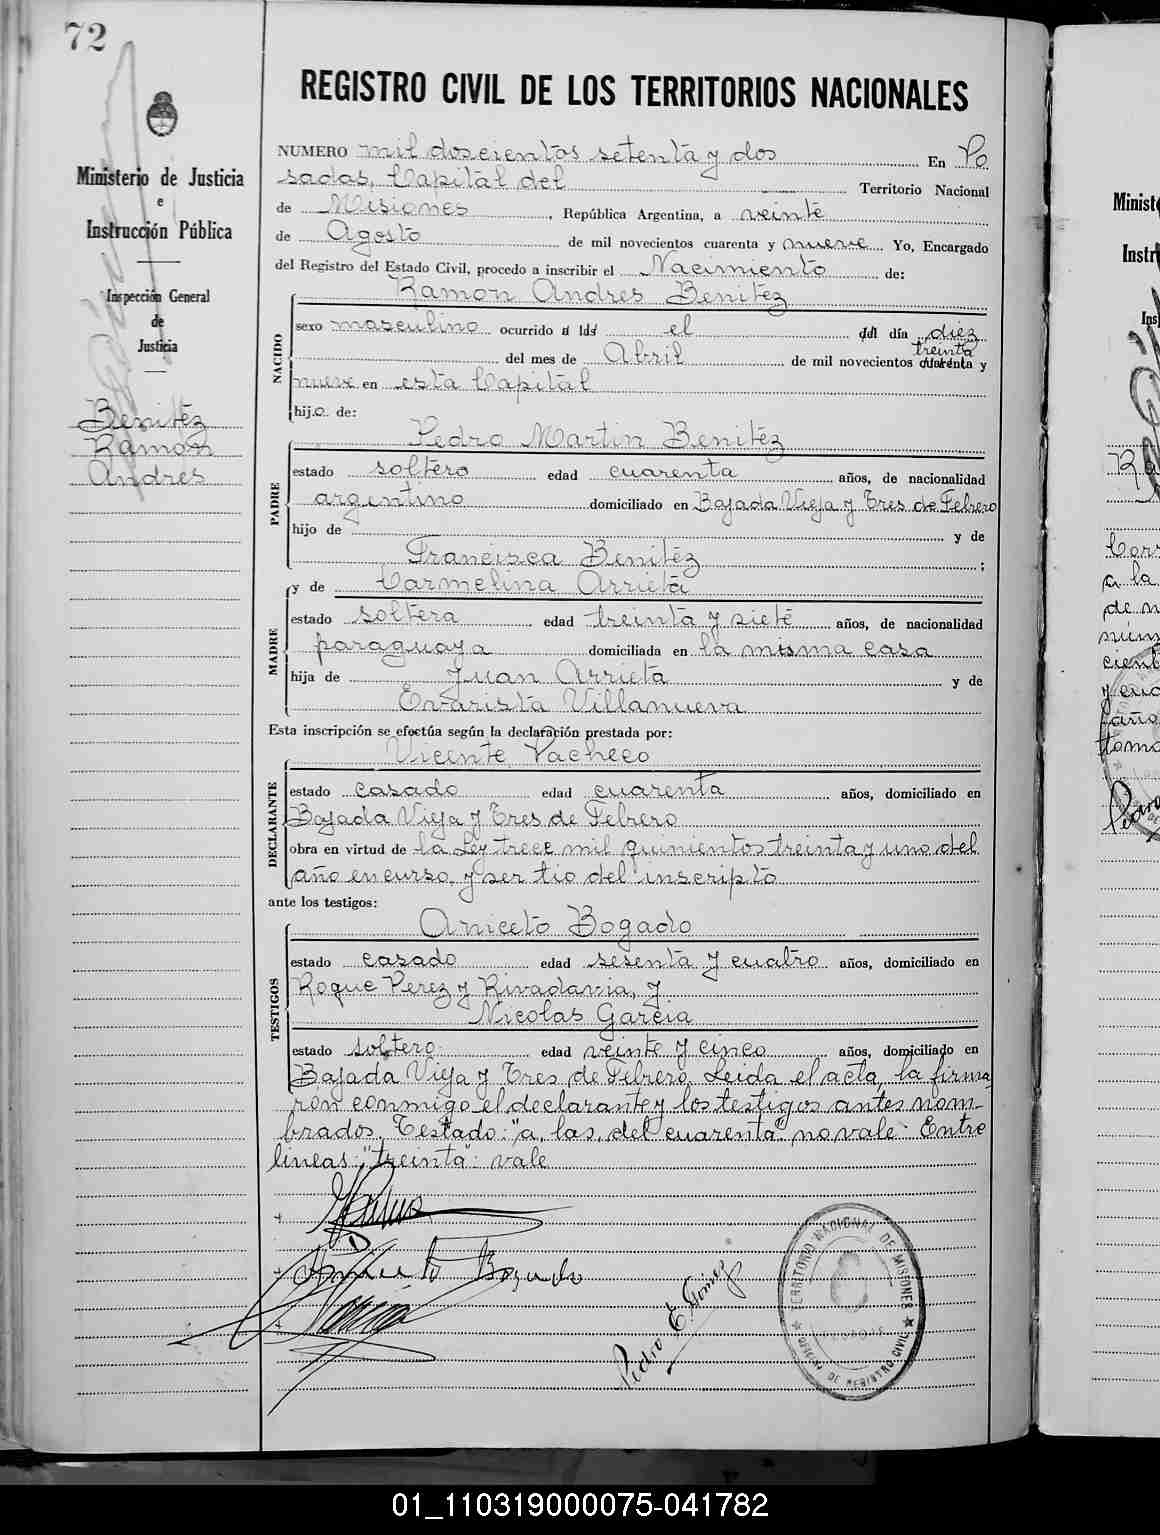 72
REGISTRO CIVIL DE LOS TERRITORIOS NACIONALES
Ministerio de Justicia
e
Instrucción Pública
Inspección General
de
Justicia
Benitez
Ramon
Andres
NUMERO mil doscientos setenta y dos En Po
sadas, Capital del Territorio Nacional
de Misiones, República Argentina, a veinte
de Agosto de mil novecientos cuarenta y nueve Yo, Encargado
del Registro del Estado Civil, procedo a inscribir el Nacimiento de:
Ramon Andres Benitez
NACIDO
sexo masculino ocurrido a las el del día diez
treinta
del mes de Abril de mil novecientos cuarenta y
nueve en esta Capital
hijo de:
Pedro Martin Benitez
PADRE
estado soltero edad cuarenta años, de nacionalidad
argentino domiciliado en Bajada Vieja y Tres de Febrero
hijo de y de
Francisca Benitez ;
y de Carmelina Arrieta
MADRE
estado soltera edad treinta y siete años, de nacionalidad
paraguaya domiciliada en la misma casa
hija de Juan Arrieta y de
Evarista Villanueva
Esta inscripción se efectúa según la declaración prestada por:
Vicente Pacheco
DECLARANTE
estado casado edad cuarenta años, domiciliado en
Bajada Vieja y Tres de Febrero
obra en virtud de la Ley trece mil quinientos treinta y uno del
año en curso, y ser tio del inscripto
ante los testigos:
Aniceto Bogado
TESTIGOS
estado casado edad sesenta y cuatro años, domiciliado en
Roque Perez y Rivadavia, y
Nicolas Garcia
estado soltero edad veinte y cinco años, domiciliado en
Bajada Vieja y Tres de Febrero. Leida el acta, la firma
ron conmigo el declarante y los testigos antes nom-
brados. Testado: "a, las, del cuarenta" no vale. Entre
lineas: "treinta": vale
Aniceto Bogado
Garcia
Pedro E. Gómez
TERRITORIO NACIONAL DE MISIONES
OFICINA DE REGISTRO CIVIL
Minist
Instr
Ins
Ra
Corr
a la
de n
núm
cient
y cua
Pedro
01_110319000075-041782